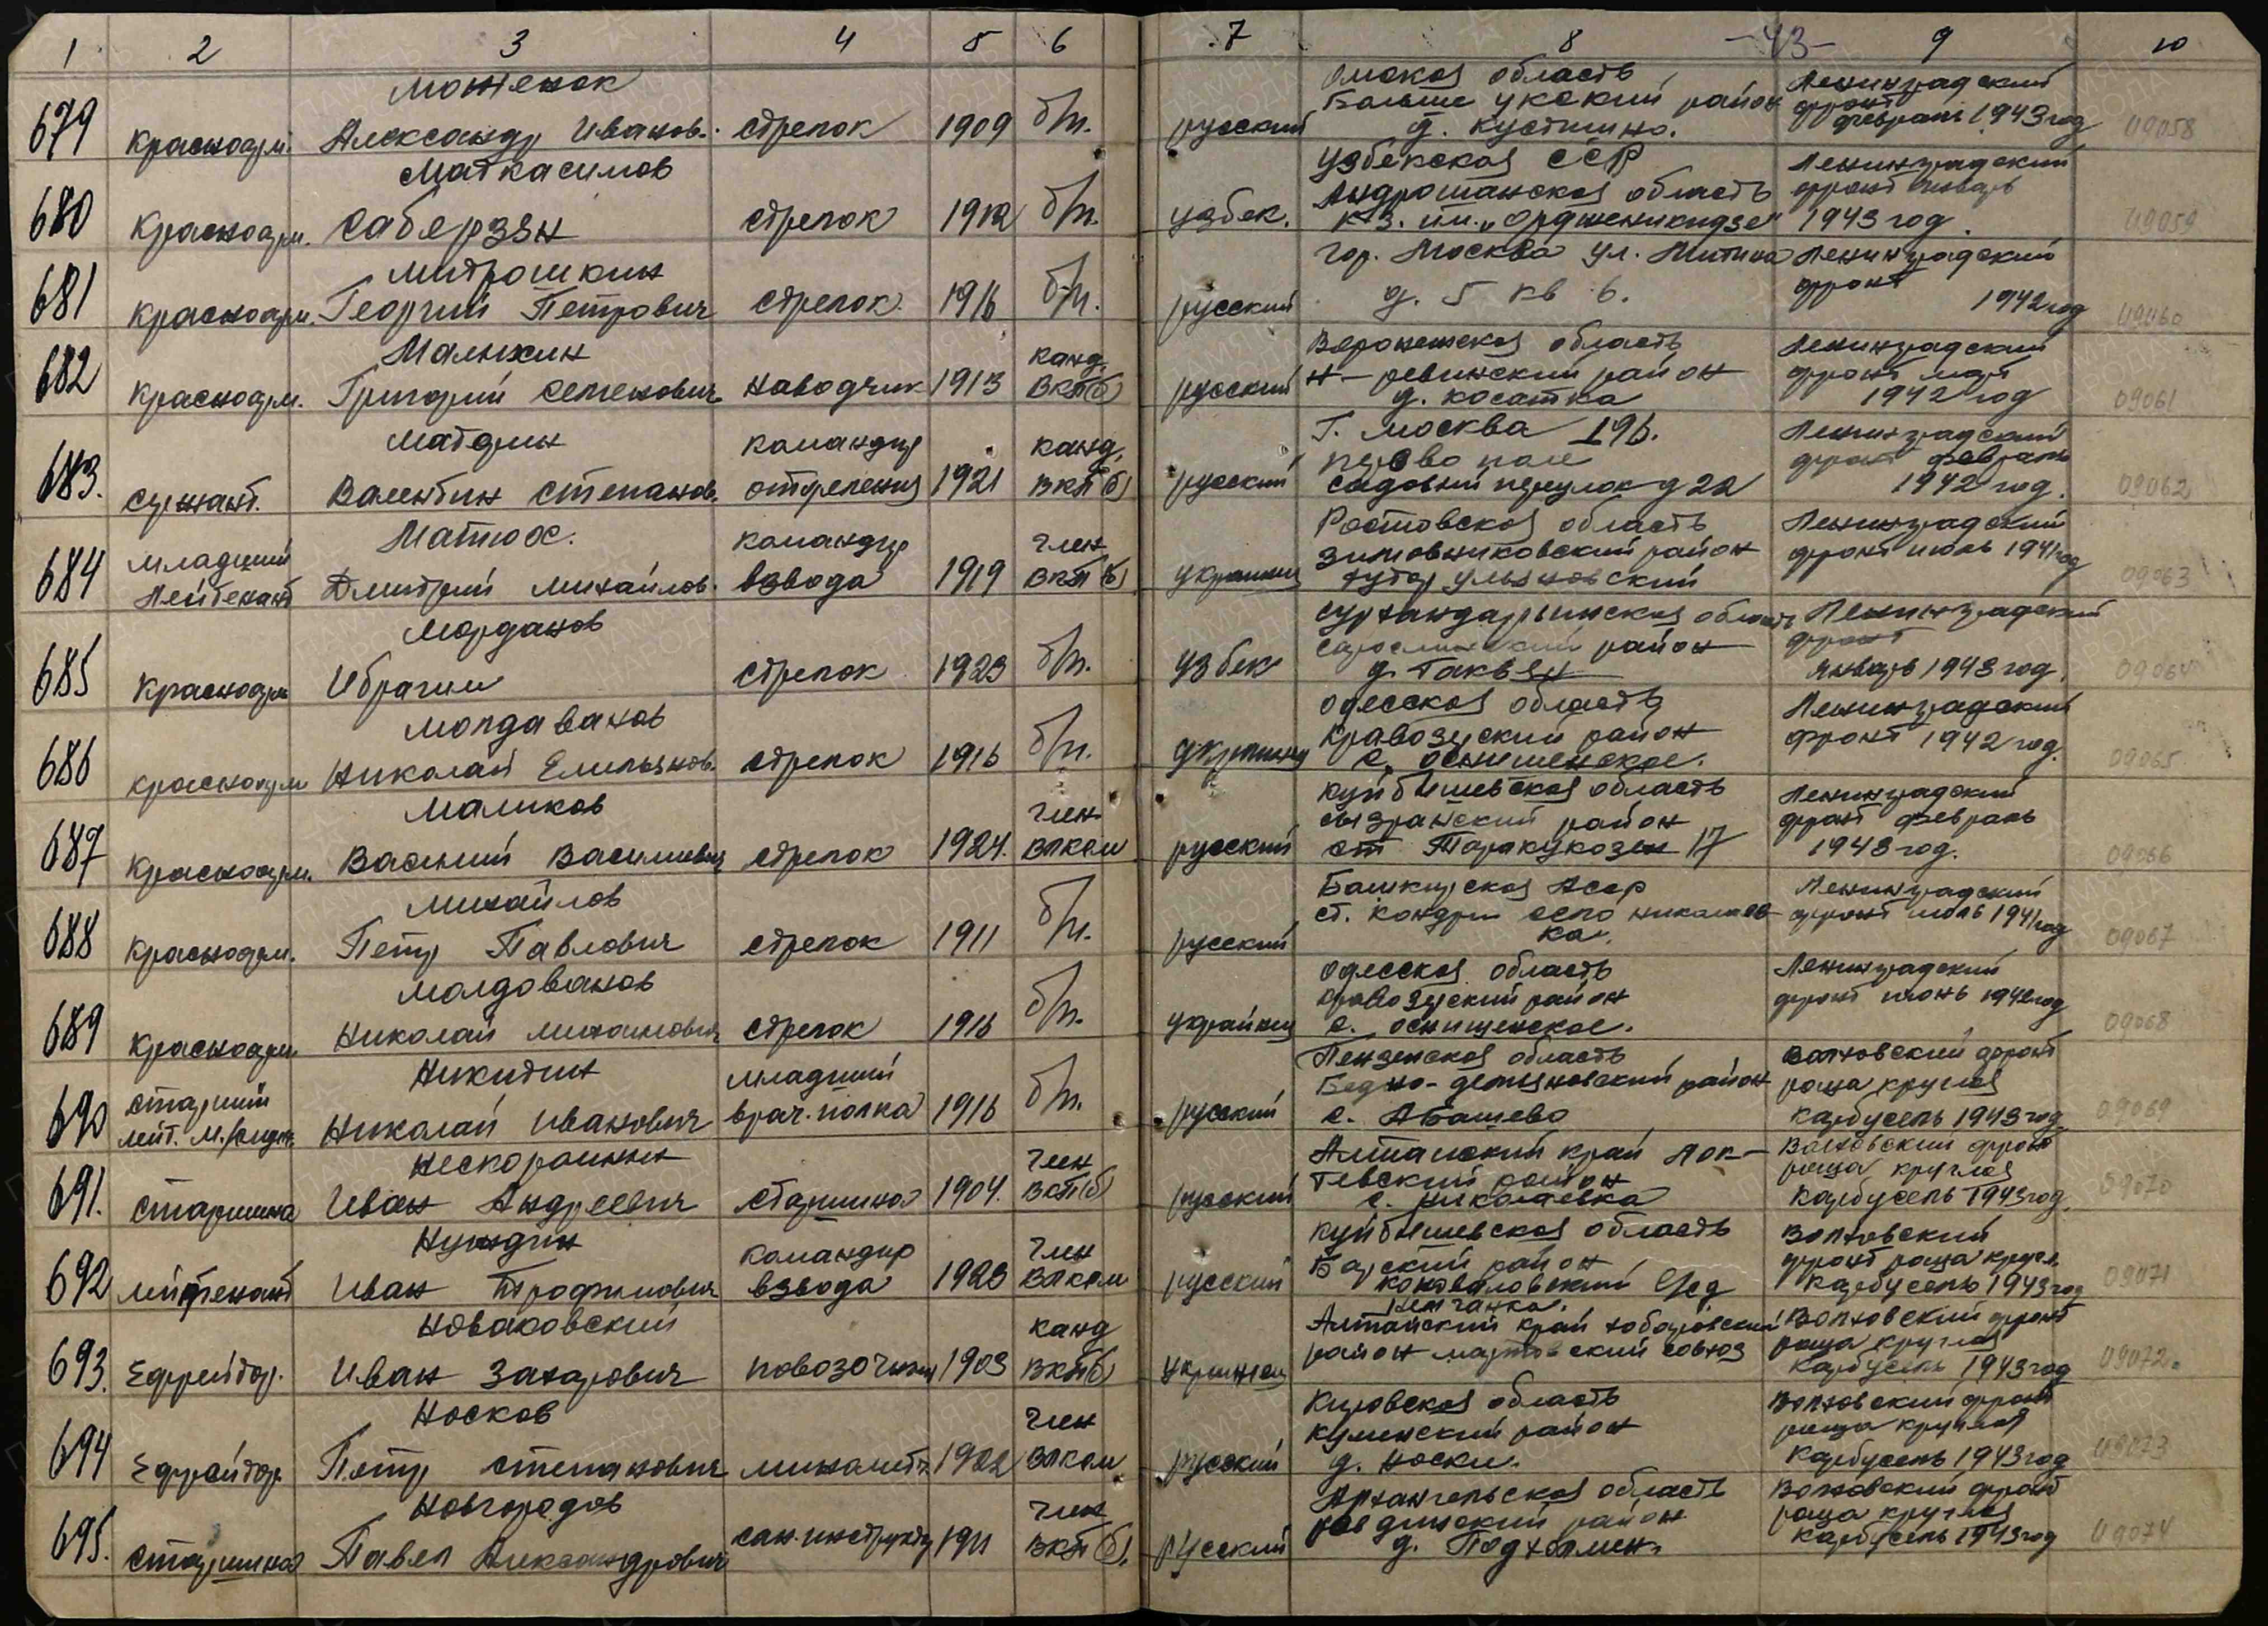 1 2 3 4 5 6 7 8 -43- 9 10
Моженок
679 Красноарм. Александр Иванов. стрелок 1909 б/п. русский
Омская область
Больше укский район
д. Кустишно.
Ленинградский
фронт
февраль 1943 год
09058
Маткасимов
680 Красноарм. Саберзян стрелок 1912 б/п. узбек.
Узбекская ССР
Андрошанская область
к-з. им. „Орджоникидзе"
Ленинградский
фронт январь
1943 год.
09059
Митрошкин
681 Красноарм. Георгий Петрович стрелок 1916 б/п. русский
гор. Москва ул. Митина
д. 5 кв 6.
Ленинградский
фронт
1942 год
09060
Малыхин
682 Красноарм. Григорий Семенович наводчик 1913 канд. ВКП(б) русский
Воронежская область
Н-девинский район
д. Косатка
Ленинградский
фронт март
1942 год
09061
683. Сержант. Валентин Степанов. командир отделения 1921 канд. ВКП(б) русский
Г. Москва 196.
перово поле
садовый переулок д 22
Ленинградский
фронт февраль
1942 год.
09062
Матюх.
684 младший Лейтенант Дмитрий Михайлов. командир взвода 1919 член ВКП(б) украинец
Ростовская область
Зимовниковский район
хутор Ульяновский
Ленинградский
фронт июль 1941 год
09063
Морданов
685 Красноарм Ибрагим стрелок 1923 б/п. узбек
Сурхандарьинская область
район
д. Таквян
Ленинградский
фронт
январь 1943 год.
09064
Молдаванов
686 Красноарм Николай Емельянов. стрелок 1916 б/п. украинец
Одесская область
Кравозерский район
с. Оснишенское.
Ленинградский
фронт 1942 год.
09065
Маликов
687 Красноарм. Василий Васильевич стрелок 1924. член ВЛКСМ русский
Куйбышевская область
Сызранский район
ст Таракукозен 17
Ленинградский
фронт февраль
1943 год.
09066
Михайлов
688 Красноарм. Петр Павлович стрелок 1911 б/п. русский
Башкирская Асср
ст. Кондры село Николаев-
ка.
Ленинградский
фронт июль 1941 год
09067
Молдованов
689 Красноарм Николай Михайлович стрелок 1916 б/п. украинец
Одесская область
Кравозерский район
с. Оснищенское.
Ленинградский
фронт июнь 1942 год
09068
Никитин
690 старший лейт. м/служ. Николай Иванович младший врач. полка 1916 б/п. русский
Пензенская область
Бедно-демяновский район
с. Абашево
Волховский фронт
роща круглая
Карбусель 1943 год.
09069
Нескоромный
691. старшина Иван Андреевич старшина 1904. член ВКП(б) русский
Алтайский край Лок-
тевский район
с. Николаевка
Волховский фронт
роща круглая
Карбусель 1943 год.
09070
Нуждин
692 лейтенант Иван Трофимович командир взвода 1923 член ВЛКСМ русский
Куйбышевская область
Борский район
Коноваловский с/сд
Волховский
фронт роща кругл.
Карбусель 1943 год
09071
Новаковский
693. Ефрейтор. Иван Захарович повозочный 1903 канд ВКП(б) украинец
Алтайский край Хабаровский
район мартовский совхоз
Волховский фронт
роща круглая
Карбусель 1943 год
09072
Носков
694 Ефрейтор Петр Степанович минометч. 1922 член ВЛКСМ русский
Кировская область
Куменский район
д. Носки.
Волховский фронт
роща круглая
Карбусель 1943 год
09073
Новгородов
695. старшина Павел Александрович сан.инструкт 1911 член ВКП(б). русский
Архангельская область
ровдинский район
д. Подхолмен.
Волховский фронт
роща круглая
Карбусель 1943 год
09074